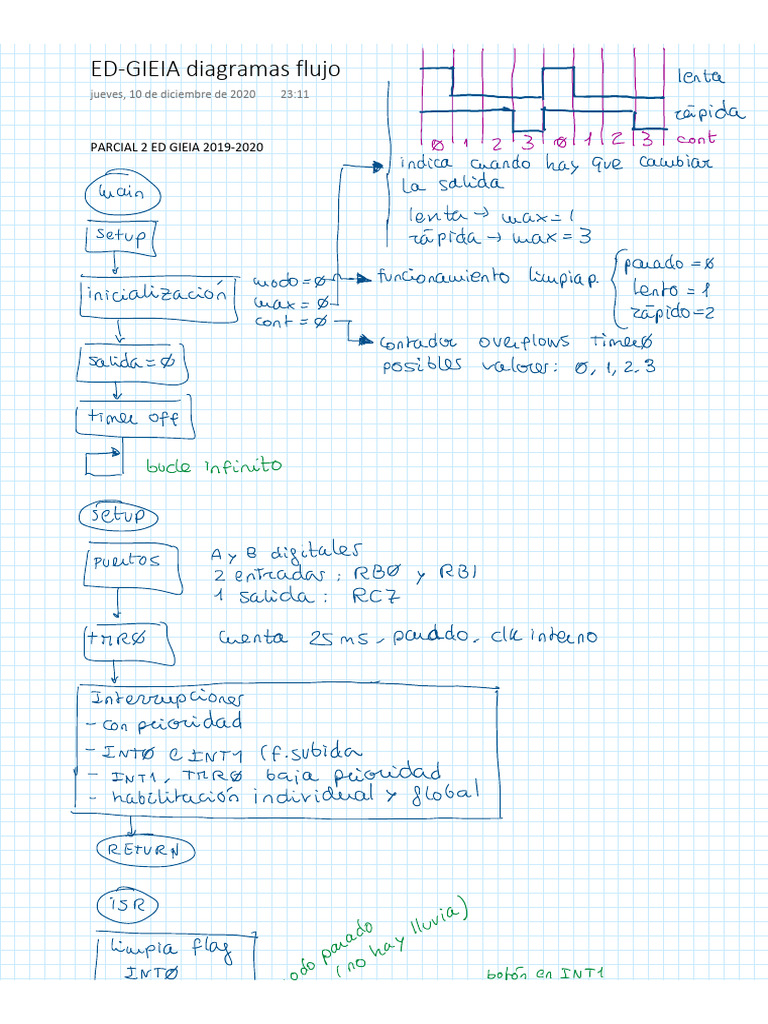 ED-GIEIA diagramas flujo
jueves, 10 de diciembre de 2020 23:11
lenta
rápida
0 1 2 3 0 1 2 3 cont
PARCIAL 2 ED GIEIA 2019-2020
indica cuando hay que cambiar
la salida
lenta → max = 1
rápida → max = 3
main
setup
inicialización
modo = 0
max = 0
cont = 0
funcionamiento limpiap.
parado = 0
lento = 1
rápido = 2
contador overflows timer0
posibles valores: 0, 1, 2, 3
salida = 0
timer off
bucle infinito
setup
puertos
A y B digitales
2 entradas: RB0 y RB1
1 salida: RC7
TMR0
Cuenta 25 ms, parado, clk interno
Interrupciones
- con prioridad
- INT0 e INT1 (f. subida
- INT1, TMR0 baja prioridad
- habilitación individual y global
RETURN
ISR
limpia flag
INT0
odo parado
(no hay lluvia)
botón en INT1